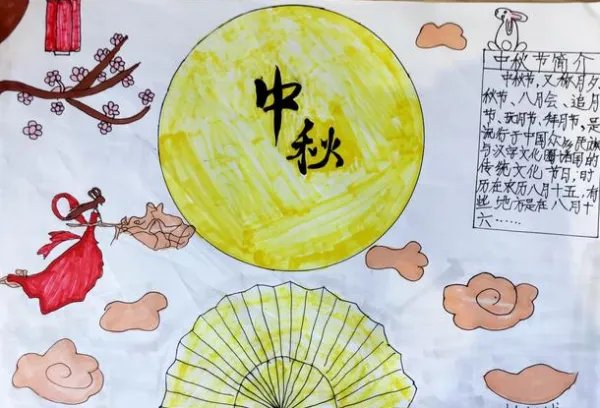 中秋
中秋节简介
中秋节，又称月夕、
秋节、八月会、追月
节、玩月节、拜月节，是
流行于中国众多民族
与汉字文化圈诸国的
传统文化节日，时
历在农历八月十五，有
些地方是在八月十
六……